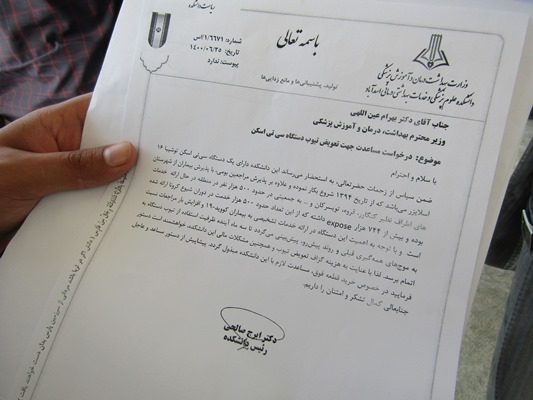 ریاست دانشکده
باسمه تعالی
شماره: ۱/۶۶۷۱/ص/۱
تاریخ: ۱۴۰۰/۰۶/۲۵
پیوست: ندارد
تولید، پشتیبانی‌ها و مانع زدایی‌ها
وزارت بهداشت درمان و آموزش پزشکی
دانشکده علوم پزشکی و خدمات بهداشتی درمانی اسدآباد
جناب آقای دکتر بهرام عین اللهی
وزیر محترم بهداشت، درمان و آموزش پزشکی
موضوع: درخواست مساعدت جهت تعویض تیوپ دستگاه سی تی اسکن
با سلام و احترام
ضمن سپاس از زحمات حضرتعالی، به استحضار می‌رساند این دانشکده دارای یک دستگاه سی تی اسکن توشیبا ۱۶
اسلایزر می‌باشد که از تاریخ ۱۳۹۴ شروع بکار نموده و علاوه بر پذیرش مراجعین بومی، با پذیرش بیماران از شهرستان
های اطراف نظیر کنگاور، تویسرکان و ... و جمعیتی در حدود ۵۰۰ هزار نفر در منطقه در حال ارائه خدمات
بوده و بیش از ۷۴۴ هزار expose داشته که از این تعداد حدود ۵۰۰ هزار خدمت در دوران شیوع کرونا ارائه شده
است و با توجه به اهمیت این دستگاه در ارائه خدمات تشخیصی به بیماران کووید-۱۹ و افزایش بار مراجعات نسبت
به موج‌های همه‌گیری قبلی و روند پیش‌رو، پیش‌بینی می‌گردد تا سه ماه آینده ظرفیت استفاده از تیوپ دستگاه به
اتمام برسد. لذا با عنایت به هزینه گزاف تعویض تیوپ و همچنین مشکلات مالی این دانشکده، خواهشمند است دستور
فرمایید در خصوص خرید قطعه فوق، مساعدت لازم با این دانشکده مبذول گردد. پیشاپیش از دستور مساعد و بذل
جنابعالی کمال تشکر و امتنان را داریم.
دکتر ایرج صالحی
رئیس دانشکده